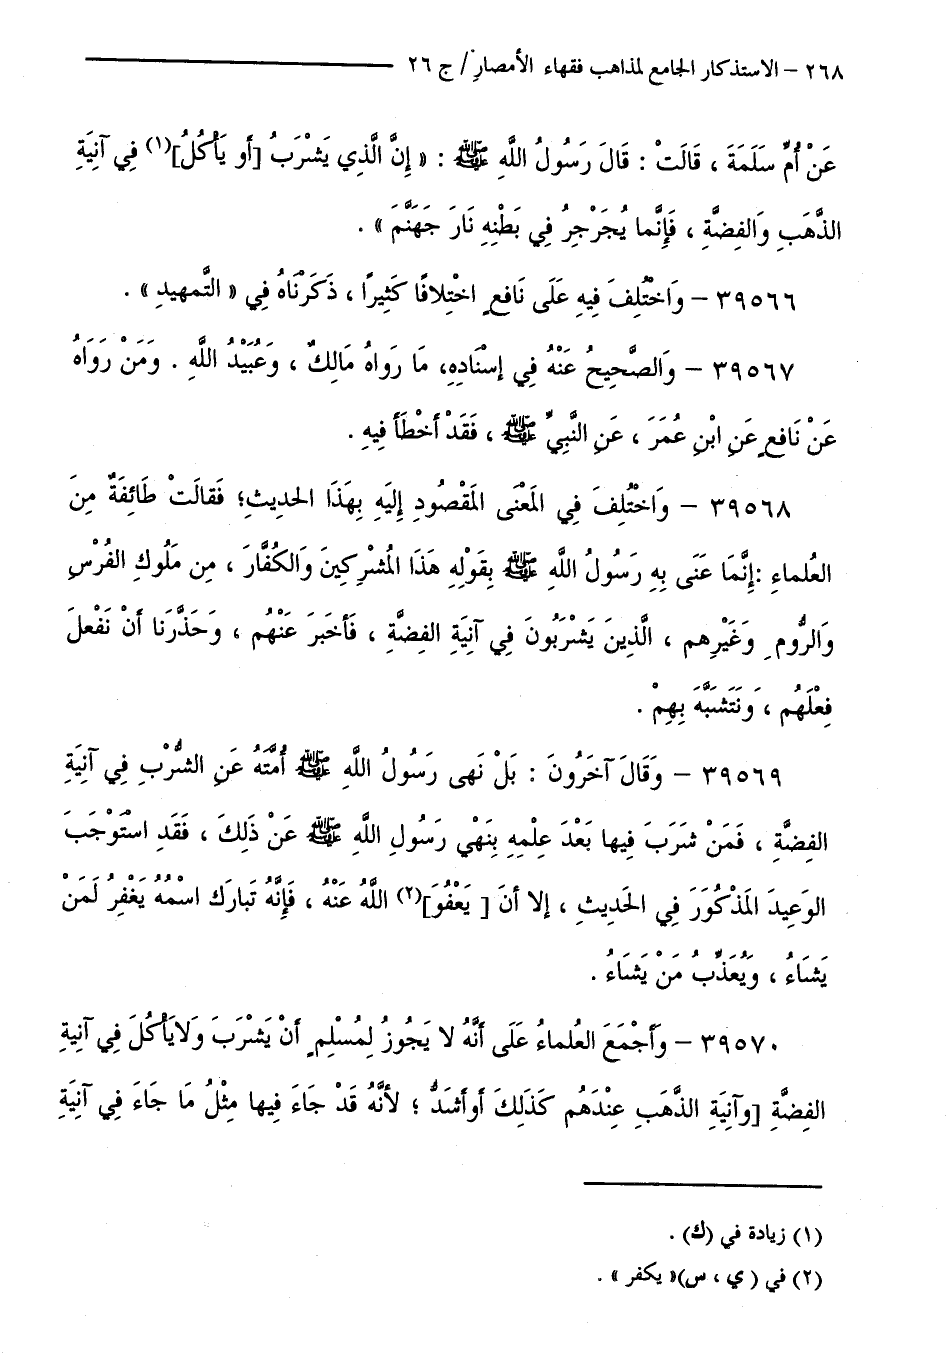 ٢٦٨ - الاستذكار الجامع لمذاهب فقهاء الأمصار / ج ٢٦
عَنْ أُمِّ سَلَمَةَ ، قَالَتْ : قَالَ رَسُولُ اللَّهِ ﷺ : « إِنَّ الَّذِي يَشْرَبُ [أو يَأْكُلُ](١) فِي آنِيَةِ
الذَّهَبِ وَالفِضَّةِ ، فَإِنَّما يُجَرْجِرُ فِي بَطْنِهِ نَارَ جَهَنَّمَ » .
٣٩٥٦٦ - وَاخْتُلِفَ فِيهِ عَلَى نَافِعٍ اخْتِلافًا كَثِيرًا ، ذَكَرْنَاهُ فِي « التَّمهِيدِ » .
٣٩٥٦٧ - وَالصَّحِيحُ عَنْهُ فِي إِسْنَادِهِ، مَا رَوَاهُ مَالِكٌ ، وَعُبَيْدُ اللَّهِ . وَمَنْ رَوَاهُ
عَنْ نَافِعٍ عَنِ ابْنِ عُمَرَ ، عَنِ النَّبِيِّ ﷺ ، فَقَدْ أَخْطَأَ فِيهِ .
٣٩٥٦٨ - وَاخْتُلِفَ فِي المَعْنَى المَقْصُودِ إِلَيهِ بِهَذَا الحَديثِ؛ فَقالَتْ طَائِفَةٌ مِنَ
العُلماءِ :إِنَّمَا عَنَى بِهِ رَسُولُ اللَّهِ ﷺ بِقَوْلِهِ هَذَا المُشْرِكِينَ وَالكُفَّارَ ، مِن مَلُوكِ الفُرْسِ
وَالرُّومِ وَغَيْرِهِم ، الَّذِينَ يَشْرَبُونَ فِي آنِيَةِ الفِضَّةِ ، فَأَخبَرَ عَنْهُم ، وَحَذَّرَنا أنْ نَفْعلَ
فِعْلَهُم ، وَنَتَشَبَّهَ بِهِمْ .
٣٩٥٦٩ - وَقَالَ آخَرُونَ : بَلْ نَهى رَسُولُ اللَّهِ ﷺ أُمَّتَهُ عَنِ الشُّرْبِ فِي آنِيَةِ
الفِضَّةِ ، فَمَنْ شَرَبَ فِيها بَعْدَ عِلْمِهِ بِنَهْيِ رَسُولِ اللَّهِ ﷺ عَنْ ذَلِكَ ، فَقَدِ اسْتَوْجَبَ
الوَعِيدَ المَذْكُورَ فِي الحَدِيثِ ، إلا أنَ [ يَعْفُوَ](٢) اللَّهُ عَنْهُ ، فَإِنَّهُ تَبارَك اسْمُهُ يَغْفِرُ لَمَنْ
يَشَاءُ ، وَيُعَذِّبُ مَنْ يَشَاءُ .
٣٩٥٧٠ - وَأَجْمَعَ العُلماءُ عَلَى أَنَّهُ لا يَجُوزُ لِمُسْلِمٍ أنْ يَشْرَبَ وَلايَأْكُلَ فِي آنِيةِ
الفِضَّةِ [وآنِيَةِ الذَّهَبِ عِنْدَهُم كَذَلِكَ أوأشَدُّ ؛ لأنَّهُ قَدْ جَاءَ فِيها مِثْلُ مَا جَاءَ فِي آنِيَةِ
(١) زيادة في (ك) .
(٢) في ( ي ، س)« يكفر » .